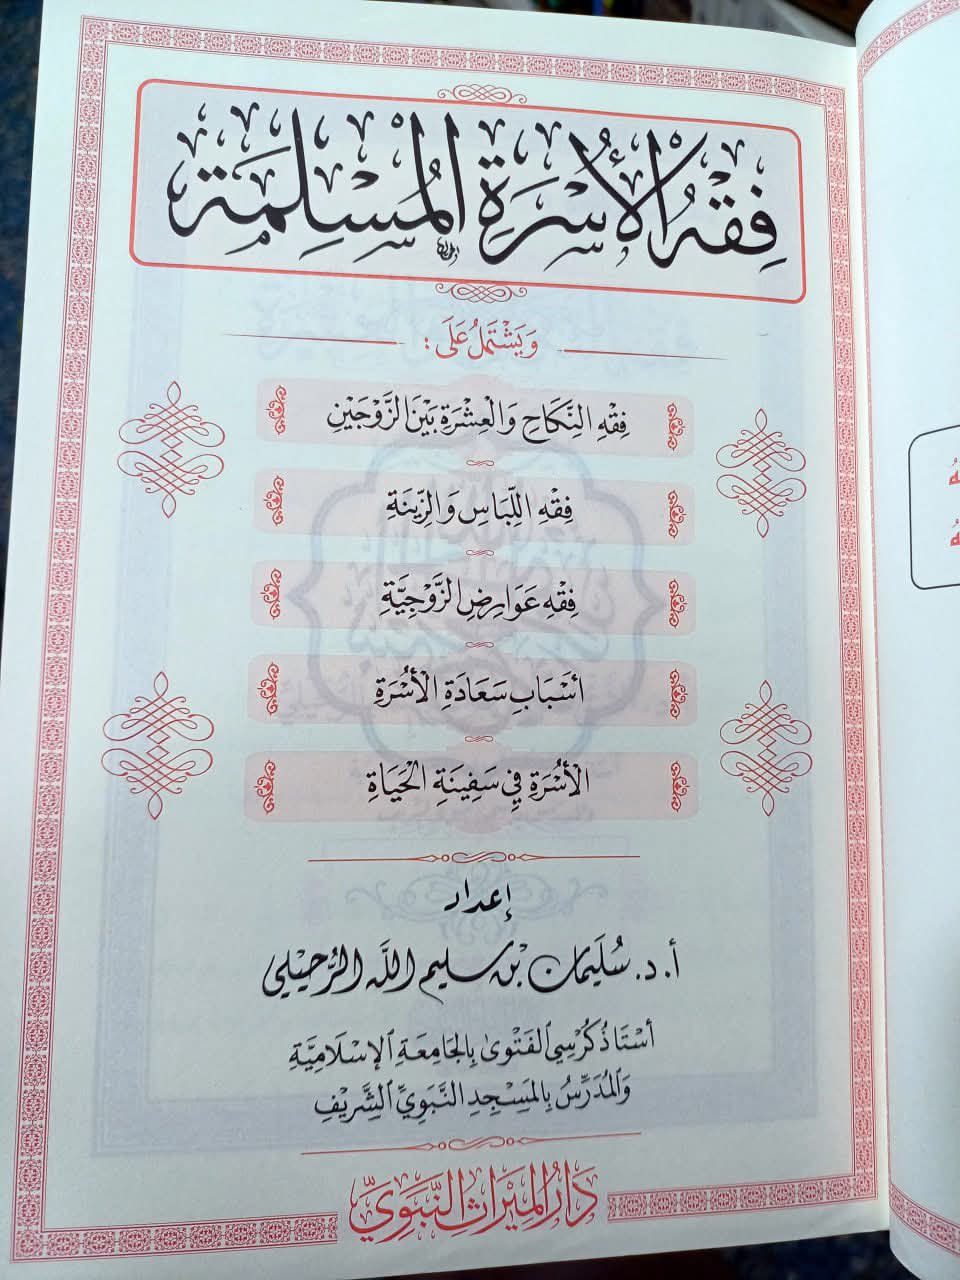 فِقْهُ الْأُسْرَةِ الْمُسْلِمَةِ
وَيَشْتَمِلُ عَلَى :
فِقْهِ النِّكَاحِ وَالْعِشْرَةِ بَيْنَ الزَّوْجَيْنِ
فِقْهِ اللِّبَاسِ وَالزِّينَةِ
فِقْهِ عَوَارِضِ الزَّوْجِيَّةِ
أَسْبَابِ سَعَادَةِ الْأُسْرَةِ
الْأُسْرَةِ فِي سَفِينَةِ الْحَيَاةِ
إعداد
أ. د. سُلَيمان بن سليم الله الرُّحَيْلي
أُسْتَاذُ كُرْسِي الفَتْوىٰ بِالجَامِعَةِ الإِسْلَامِيَّةِ
وَالمُدَرِّسُ بِالمَسْجِدِ النَّبَوِيِّ الشَّرِيْفِ
دَارُ المِيْرَاثِ النَّبَوِيِّ